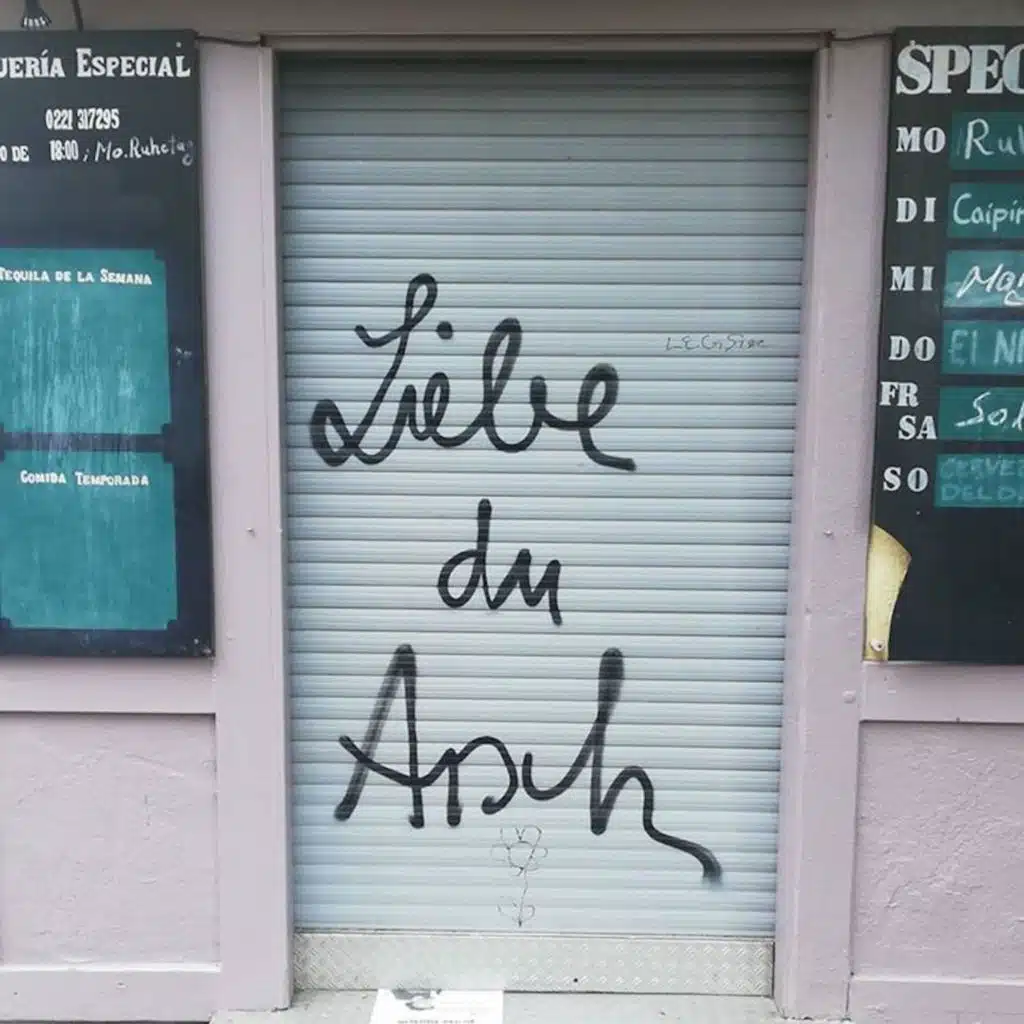 UERÍA ESPECIAL
0221 317295
O DE 18:00; Mo. Ruhetag
TEQUILA DE LA SEMANA
COMIDA TEMPORADA
Liebe
du
Arsch
SPEC
MO Ruh
DI Caipir
MI Mar
DO El Ni
FR
SA Sol
SO CERVEZ
DEL D